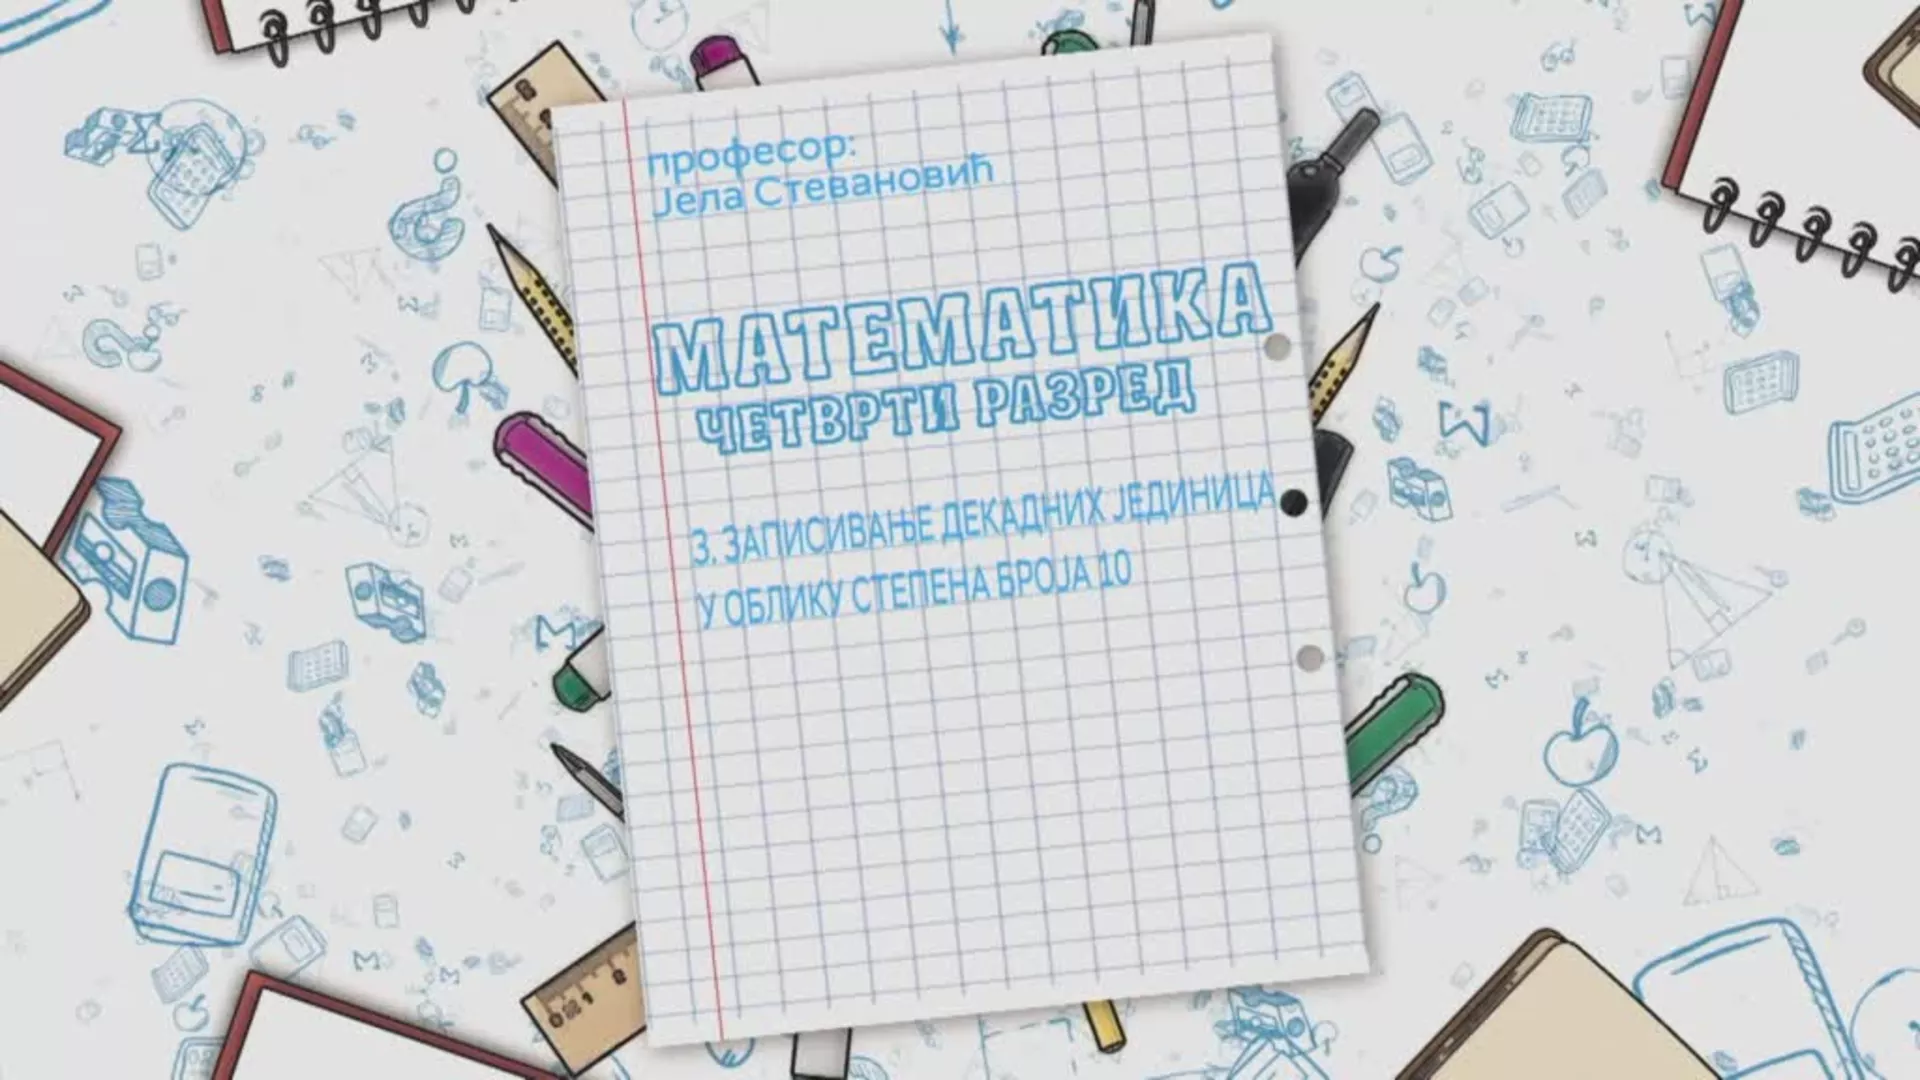 професор:
Јела Стевановић
МАТЕМАТИКА
ЧЕТВРТИ РАЗРЕД
3. ЗАПИСИВАЊЕ ДЕКАДНИХ ЈЕДИНИЦА
У ОБЛИКУ СТЕПЕНА БРОЈА 10